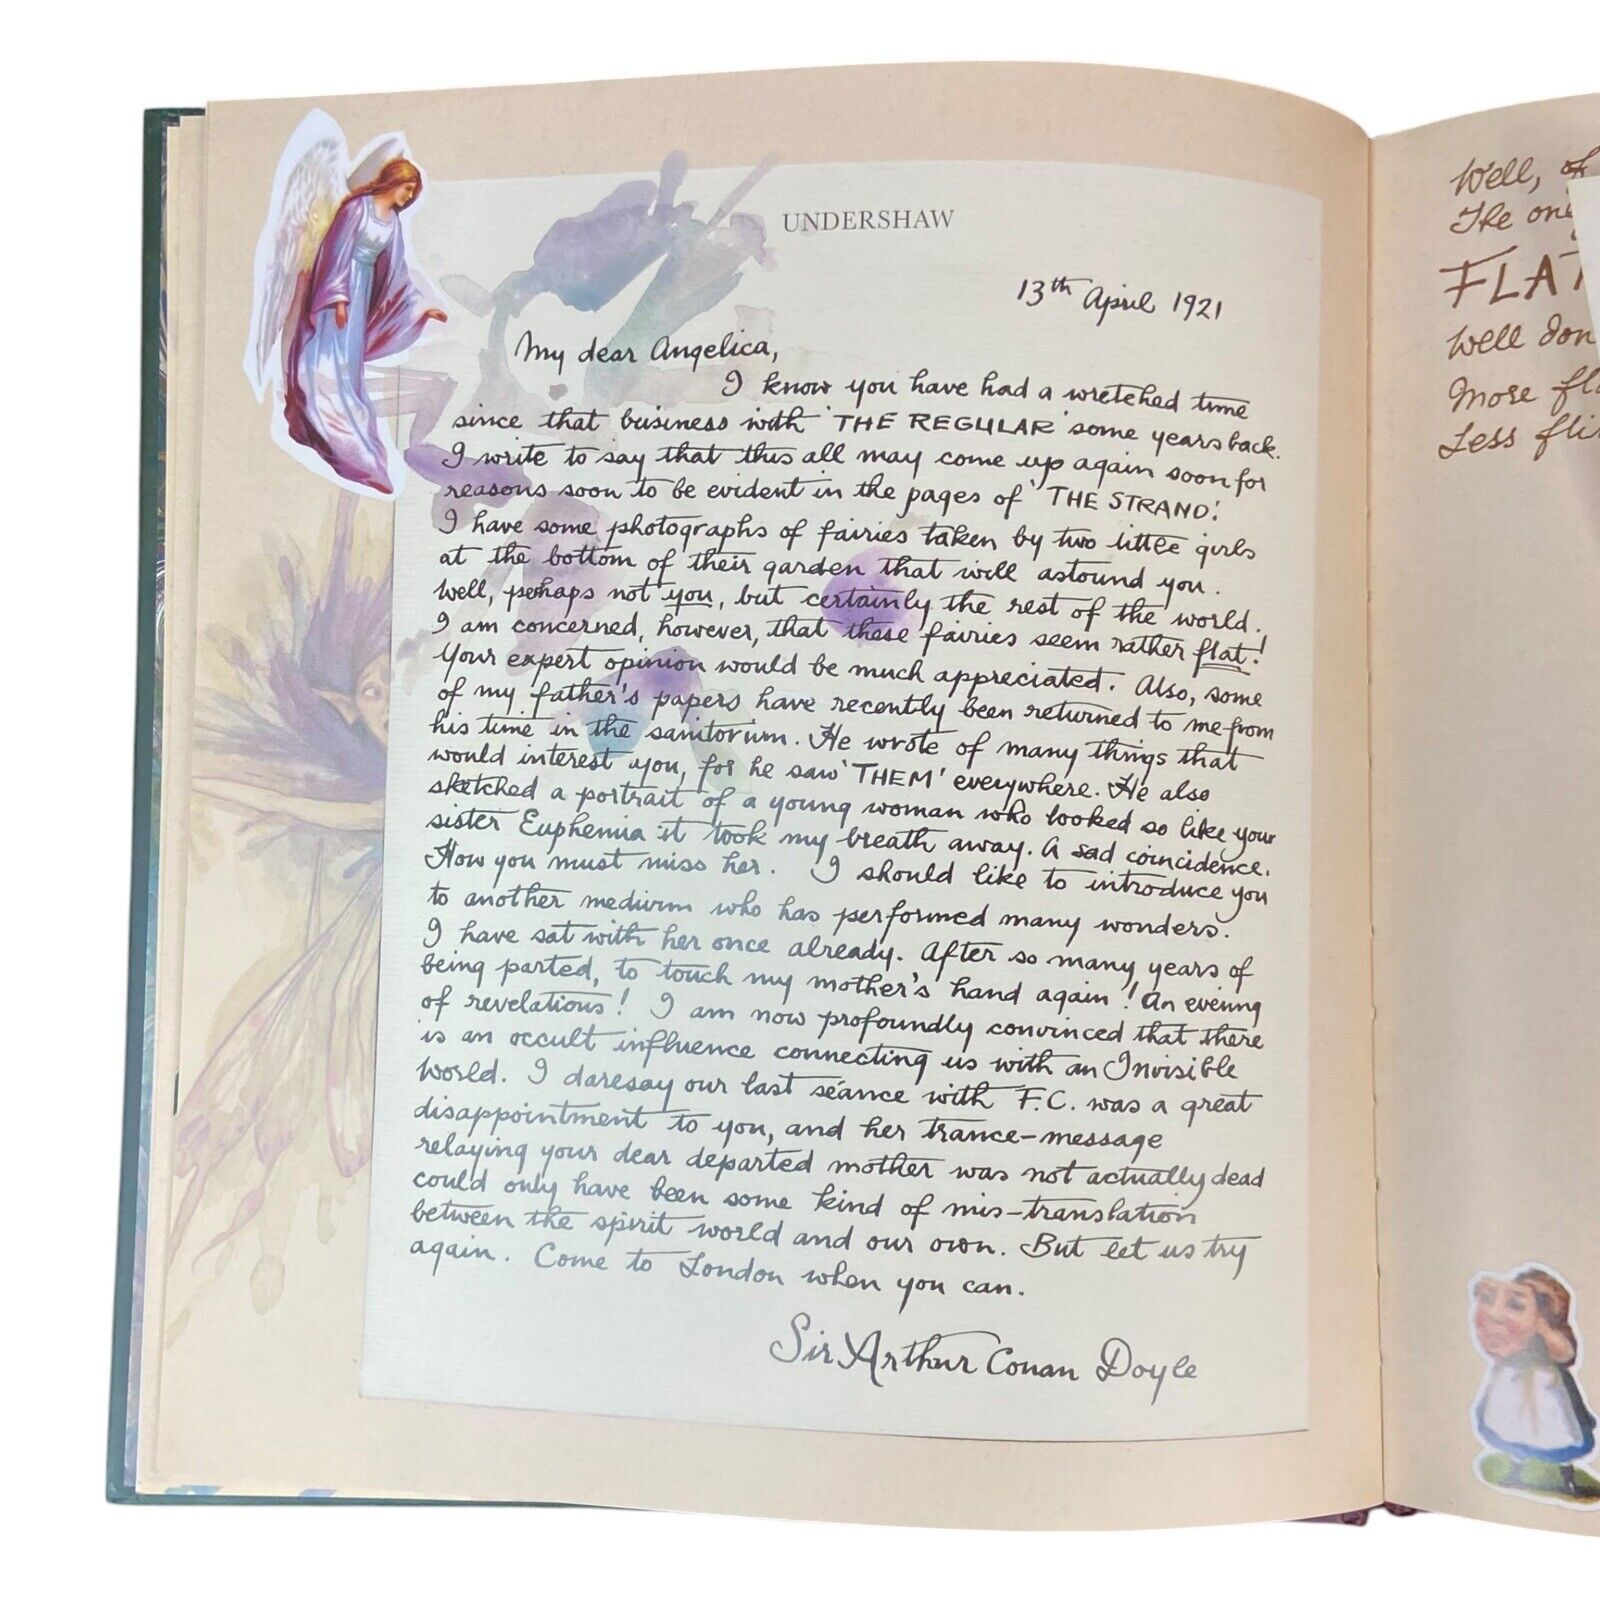 UNDERSHAW
13th April 1921
My dear Angelica,
I know you have had a wretched time
since that business with 'THE REGULAR' some years back.
I write to say that this all may come up again soon for
reasons soon to be evident in the pages of 'THE STRAND'.
I have some photographs of fairies taken by two little girls
at the bottom of their garden that will astound you.
Well, perhaps not you, but certainly the rest of the world.
I am concerned, however, that these fairies seem rather flat!
Your expert opinion would be much appreciated. Also, some
of my father's papers have recently been returned to me from
his time in the sanitorium. He wrote of many things that
would interest you, for he saw 'THEM' everywhere. He also
sketched a portrait of a young woman who looked so like your
sister Euphemia it took my breath away. A sad coincidence.
How you must miss her. I should like to introduce you
to another medium who has performed many wonders.
I have sat with her once already. After so many years of
being parted, to touch my mother's hand again! An evening
of revelations! I am now profoundly convinced that there
is an occult influence connecting us with an Invisible
World. I daresay our last séance with F.C. was a great
disappointment to you, and her trance-message
relaying your dear departed mother was not actually dead
could only have been some kind of mis-translation
between the spirit world and our own. But let us try
again. Come to London when you can.
Sir Arthur Conan Doyle
Well,
The
FLAT
Well don
More fl
Less fli